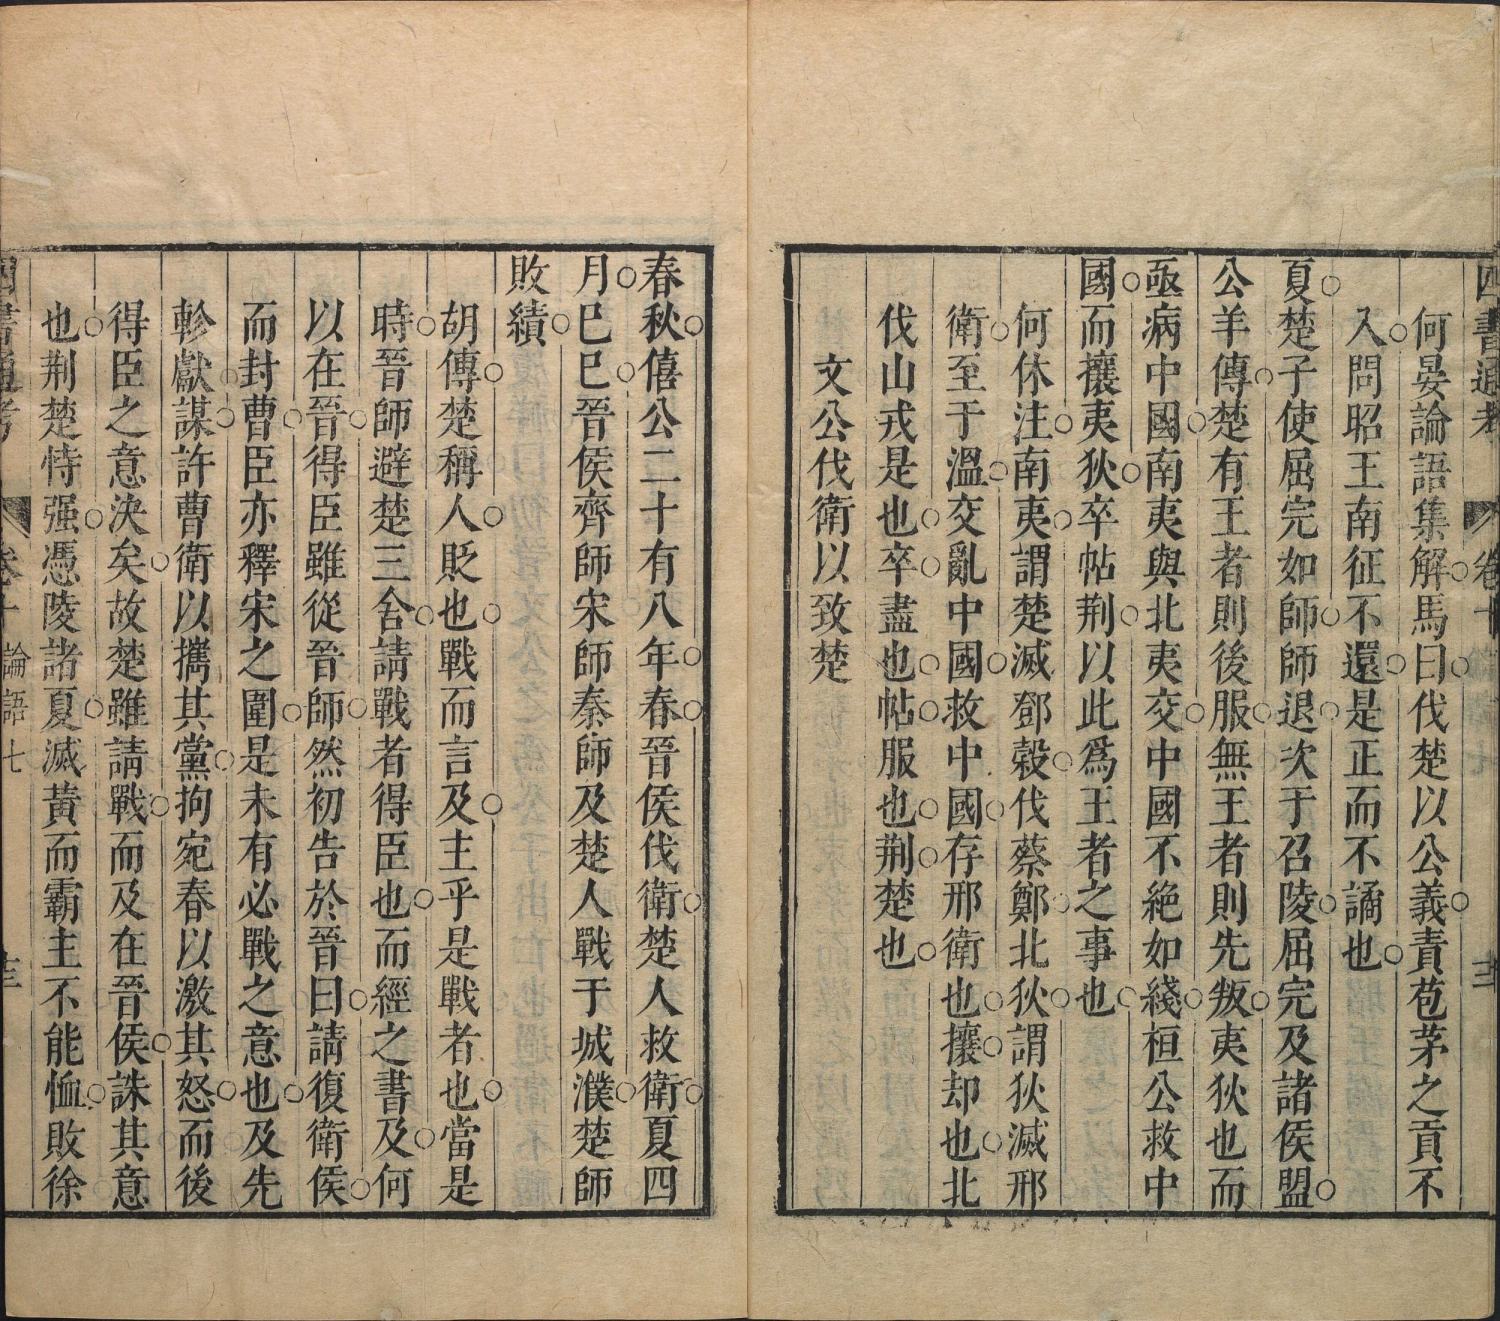 四書通考 卷十
何晏論語集解馬曰伐楚以公義責苞茅之貢不
入問昭王南征不還是正而不譎也
夏楚子使屈完如師師退次于召陵屈完及諸侯盟
公羊傳楚有王者則後服無王者則先叛夷狄也而
亟病中國南夷與北夷交中國不絶如綫桓公救中
國而攘夷狄卒帖荆以此爲王者之事也
何休注南夷謂楚滅鄧穀伐蔡鄭北狄謂狄滅邢
衛至于溫交亂中國救中國存邢衛也攘却也北
伐山戎是也卒盡也帖服也荆楚也
文公伐衛以致楚
春秋僖公二十有八年春晉侯伐衛楚人救衛夏四
月巳巳晉侯齊師宋師秦師及楚人戰于城濮楚師
敗績
胡傳楚稱人貶也戰而言及主乎是戰者也當是
時晉師避楚三舍請戰者得臣也而經之書及何
以在晉得臣雖從晉師然初告於晉曰請復衛侯
而封曹臣亦釋宋之圍是未有必戰之意也及先
軫獻謀許曹衛以攜其黨拘宛春以激其怒而後
得臣之意決矣故楚雖請戰而及在晉侯誅其意
也荆楚恃强憑陵諸夏滅黃而霸主不能恤敗徐
四書通考 卷十 論語七